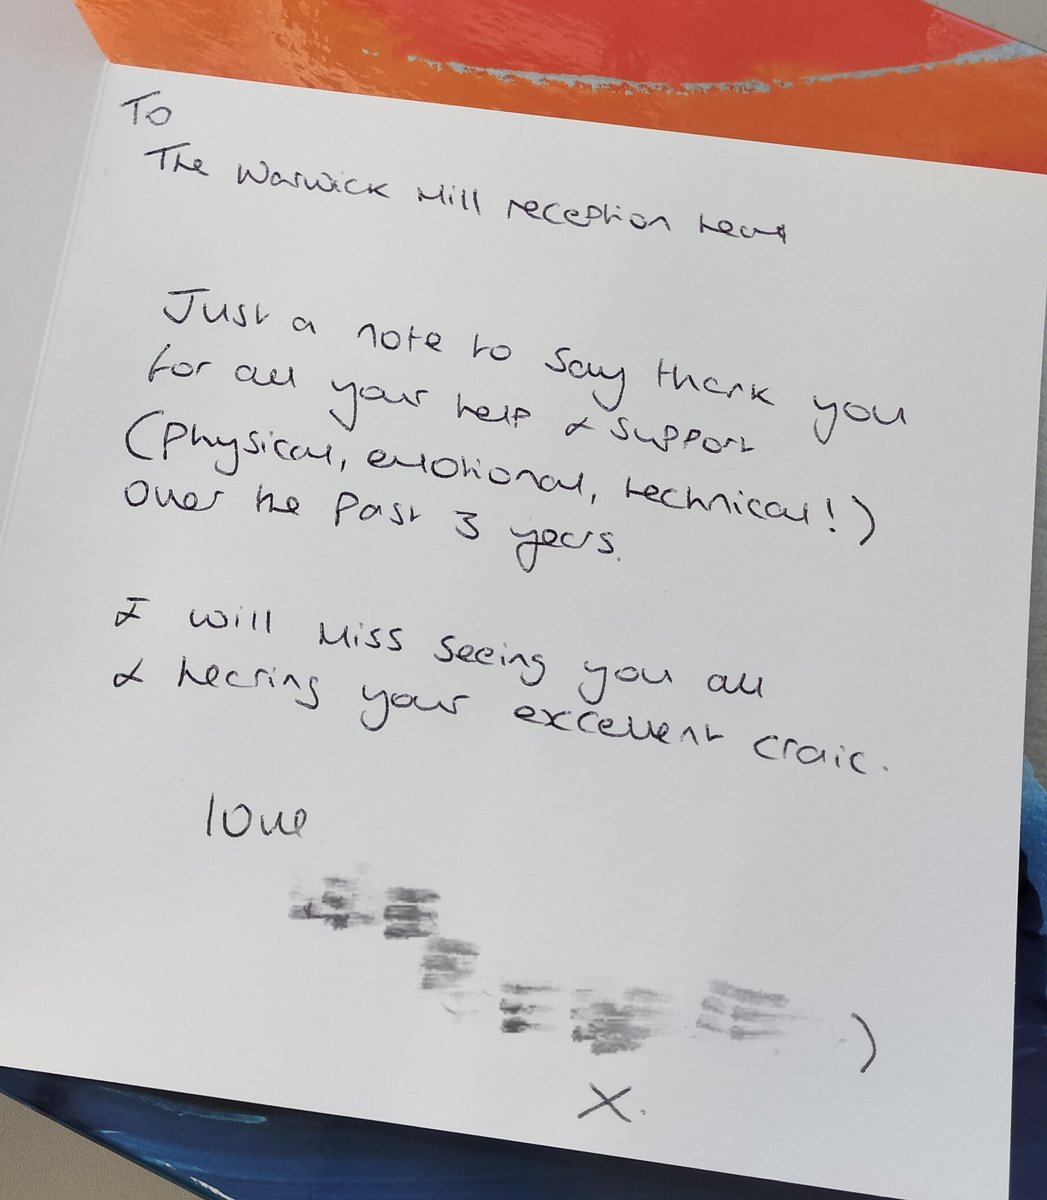 To
The Warwick Mill reception team
Just a note to say thank you
for all your help & support
(physical, emotional, technical!)
over the past 3 years.
I will miss seeing you all
& hearing your excellent craic.
love
)
X.